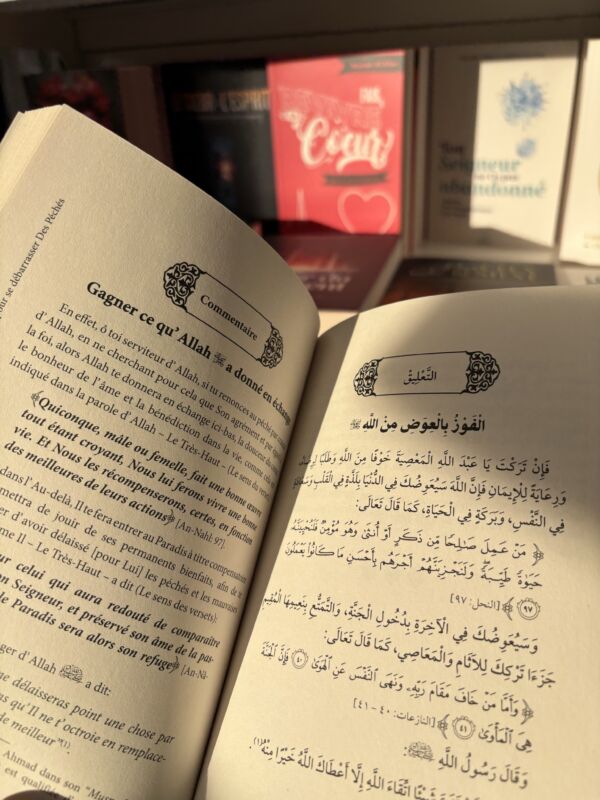 L'ESPRIT
Cœur
Ton
Seigneur
abandonné
our se débarrasser Des Péchés
Commentaire
Gagner ce qu' Allah ﷻ a donné en échange
En effet, ô toi serviteur d'Allah, si tu renonces au péché par
d'Allah, en ne cherchant pour cela que Son agrément et par
la foi, alors Allah te donnera en échange ici-bas, la douceur du
le bonheur de l'âme et la bénédiction dans la vie, comme cela
indiqué dans la parole d'Allah – Le Très-Haut – (Le sens du verset)
﴾Quiconque, mâle ou femelle, fait une bonne œuvre
tout étant croyant. Nous lui ferons vivre une bonne
vie. Et Nous les récompenserons, certes, en fonction
des meilleures de leurs actions﴿ [An-Nahl: 97].
dans l'Au-delà, Il te fera entrer au Paradis à titre compensatoire
mettra de jouir de ses permanents bienfaits, afin de te
er d'avoir délaissé [pour Lui] les péchés et les mauvaises
me Il – Le Très-Haut – a dit (Le sens des versets):
ur celui qui aura redouté de comparaître
on Seigneur, et préservé son âme de la pas-
le Paradis sera alors son refuge﴿ [An-Nâ-
ger d'Allah ﷺ a dit:
ne délaisseras point une chose par
as qu'Il ne t'octroie en remplace-
de meilleur"(1).
Ahmad dans son "Mus
est qualifié
التَّعْلِيقُ
الْفَوْزُ بِالْعِوَضِ مِنَ اللَّهِ ﷻ
فَإِنْ تَرَكْتَ يَا عَبْدَ اللَّهِ الْمَعْصِيَةَ خَوْفًا مِنَ اللَّهِ وَطَلَبًا لِرِضَاهُ
وَرِعَايَةً لِلْإِيمَانِ فَإِنَّ اللَّهَ سَيُعَوِّضُكَ فِي الدُّنْيَا بِلَذَّةٍ فِي الْقَلْبِ وَسَعَادَةٍ
فِي النَّفْسِ، وَبَرَكَةٍ فِي الْحَيَاةِ، كَمَا قَالَ تَعَالَى:
﴿ مَنْ عَمِلَ صَٰلِحًا مِّن ذَكَرٍ أَوْ أُنثَىٰ وَهُوَ مُؤْمِنٌ فَلَنُحْيِيَنَّهُۥ
حَيَوٰةً طَيِّبَةً ۖ وَلَنَجْزِيَنَّهُمْ أَجْرَهُم بِأَحْسَنِ مَا كَانُوا۟ يَعْمَلُونَ
﴿٩٧﴾ ﴾ [النحل: ٩٧]
وَسَيُعَوِّضُكَ فِي الْآخِرَةِ بِدُخُولِ الْجَنَّةِ، وَالتَّمَتُّعِ بِنَعِيمِهَا الْمُقِيمِ
جَزَاءً تَرْكِكَ لِلْآثَامِ وَالْمَعَاصِي، كَمَا قَالَ تَعَالَى:
﴿ وَأَمَّا مَنْ خَافَ مَقَامَ رَبِّهِۦ وَنَهَى ٱلنَّفْسَ عَنِ ٱلْهَوَىٰ ﴿٤٠﴾ فَإِنَّ ٱلْجَنَّةَ
هِىَ ٱلْمَأْوَىٰ ﴿٤١﴾ ﴾ [النازعات: ٤٠ - ٤١]
وَقَالَ رَسُولُ اللَّهِ ﷺ:
شَيْئًا اتِّقَاءَ اللَّهِ إِلَّا أَعْطَاكَ اللَّهُ خَيْرًا مِنْهُ"(١).